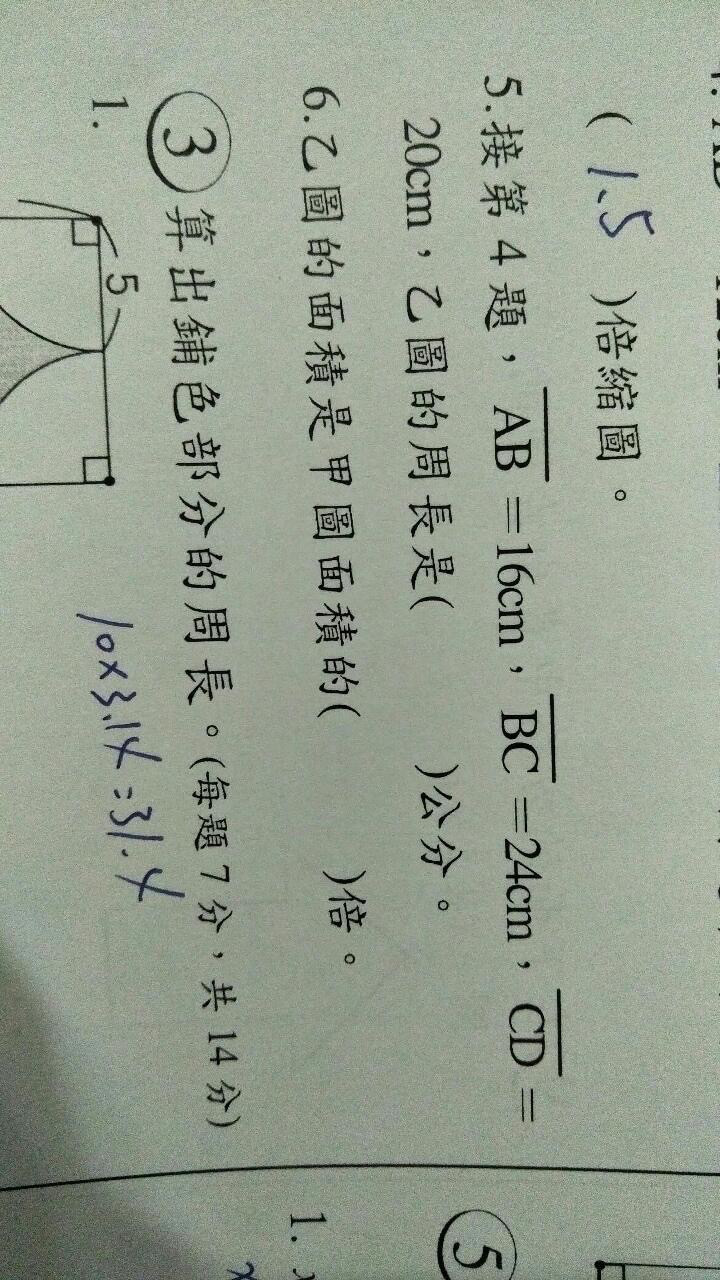 ( 1.5 )倍縮圖。
5.接第4題，AB=16cm，BC=24cm，CD=
20cm，乙圖的周長是( )公分。
6.乙圖的面積是甲圖面積的( )倍。
3 算出鋪色部分的周長。(每題7分，共14分)
1.
5
10×3.14=31.4
5
1.